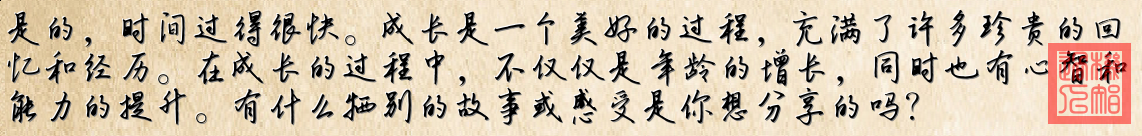 是的，时间过得很快。成长是一个美好的过程，充满了许多珍贵的回
忆和经历。在成长的过程中，不仅仅是年龄的增长，同时也有心智和
能力的提升。有什么特别的故事或感受是你想分享的吗？